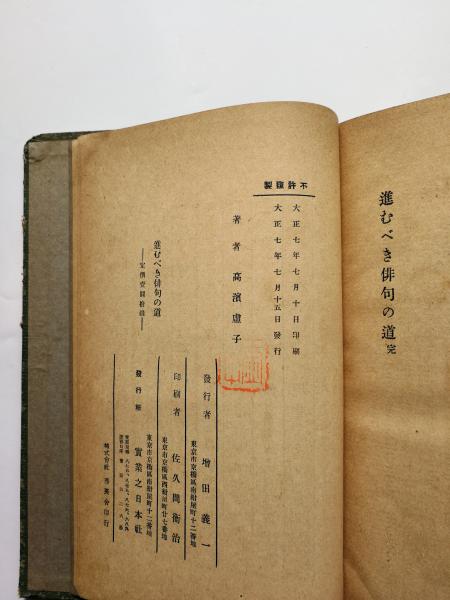 進むべき俳句の道 完
不許複製
大正七年七月十日印刷
大正七年七月十五日發行
著者 高濱虚子
進むべき俳句の道
定價壹圓拾錢
發行者 增田義一
東京市京橋區南紺屋町十二番地
印刷者 佐久間衡治
東京市京橋區西紺屋町廿七番地
發行所
東京市京橋區南紺屋町十二番地
實業之日本社
株式會社 秀英舍印行